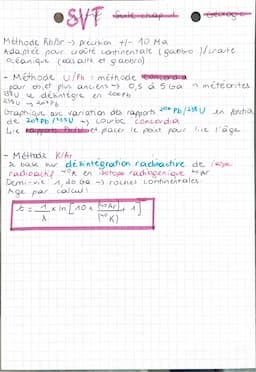 SVT Suite chap 1 Géologie
Méthode Rb/Sr → précision +/- 10 Ma
Adaptée pour croûte continentale (gabbro) / croûte
océanique (basalte et gabbro)
- Méthode U/Pb : méthode concordia
pour objet plus anciens → 0,5 à 5 Ga → météorites
238U se désintègre en 206Pb
235U → 207Pb
Graphique avec variation des rapports 206Pb/238U en fonction
de 207Pb/235U → courbe concordia
Lire et placer le point pour lire l'âge
- Méthode K/Ar
Se base sur désintégration radioactive de
radioactif 40K en isotope radiogénique 40Ar
Demi-vie 1,26 Ga → roches continentales
Age par calcul :
t = 1/λ × ln [10 × (40Ar / 40K) + 1]